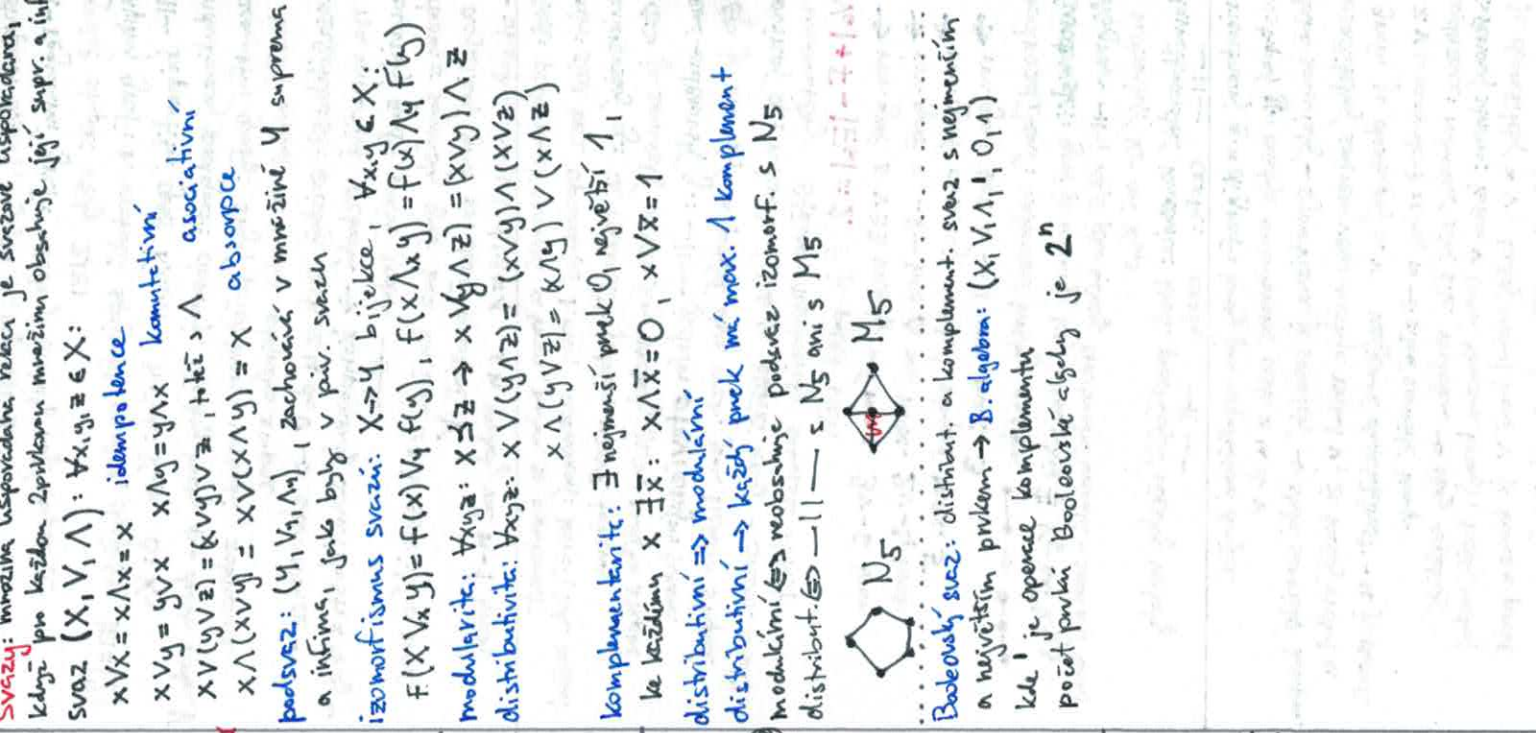 Svazy: množina uspořádaná relací je svazově uspořádaná,
když pro každou 2prvkovou množinu obsahuje její supr. a inf
svaz (X, ∨, ∧): ∀x,y,z ∈ X:
x∨x = x∧x = x idempotence
x∨y = y∨x x∧y = y∧x komutativní
x∨(y∨z) = (x∨y)∨z, totéž s ∧ asociativní
x∧(x∨y) = x∨(x∧y) = x absorpce
podsvaz: (Y, ∨y, ∧y), zachovává v množině Y suprema
a infima, jako byly v pův. svazu
izomorfismus svazů: X→Y bijekce, ∀x,y ∈ X:
f(x ∨x y) = f(x) ∨y f(y), f(x ∧x y) = f(x) ∧y f(y)
modularita: ∀xyz: x≤z → x∨(y∧z) = (x∨y)∧z
distributivita: ∀xyz: x∨(y∧z) = (x∨y)∧(x∨z)
x∧(y∨z) = (x∧y)∨(x∧z)
komplementarita: ∃ nejmenší prvek 0, největší 1,
ke každému x ∃x̄: x∧x̄=0, x∨x̄=1
distributivní ⇒ modulární
distributivní → každý prvek má max. 1 komplement
modulární ⇔ neobsahuje podsvaz izomorf. s N5
distribut. ⇔ —11— s N5 ani s M5
N5 M5
Booleovský svaz: distribut. a komplement. svaz s nejmenším
a největším prvkem → B. algebra: (X, ∨, ∧, ', 0, 1)
kde ' je operace komplementu
počet prvků Booleovské algebry je 2ⁿ